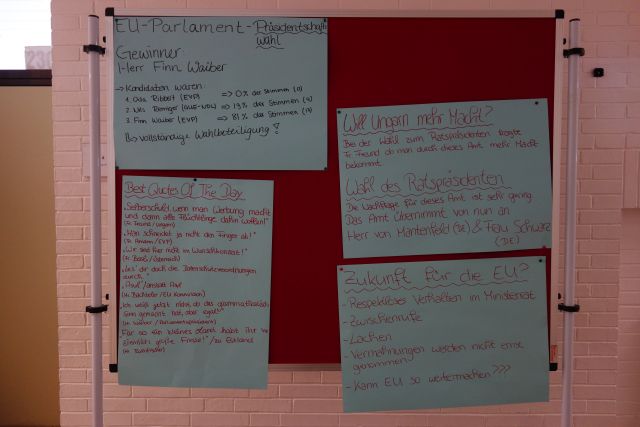 EU-Parlament - Präsidentschafts
wahl
Gewinner:
Herr Finn Waiber
→ Kandidaten waren:
1. (EVP) => 0% der Stimmen (0)
2. Nils (GUE-NGL) => 19% der Stimmen (4)
3. Finn Waiber (EVP) => 81% der Stimmen (17)
↳> vollständige Wahlbeteiligung!
Best Quotes Of The Day
"Selberschuld wenn man Werbung macht
und dann alle Flüchtlinge dahin wollen!"
(Fr. Freund / Ungarn)
"Man schneidet ja nicht den Finger ab!"
(EVP)
"Wir sind hier nicht im Wunschkonzert!"
(Österreich)
"Les' dir doch die Datenschutzverordnungen
durch."
"Paul" anstatt Paul
(Hr. Bachhofer / EU Kommission)
Ich weiß jetzt nicht, ob das grammatikalisch
Sinn gemacht hat, aber egal!"
(Hr. Waiber / Parlamentspräsident)
Für so ein kleines Land habt ihr 'ne
ziemlich große Fresse!" / zu Estland
Will Ungarn mehr Macht?
Bei der Wahl zum Ratspräsidenten fragte
Fr Freund ob man durch dieses Amt mehr Macht
bekommt.
Wahl des Ratspräsidenten
Die Nachfrage für dieses Amt ist sehr gering
Das Amt übernimmt von nun an
Herr von Mantenfeld (DE) & Frau Schwarz
(DE)
Zukunft für die EU?
- Respektloses Verhalten im Ministerrat
- Zwischenrufe
- Lachen
- Vermahnungen werden nicht ernst
genommen
- Kann EU so weitermachen???